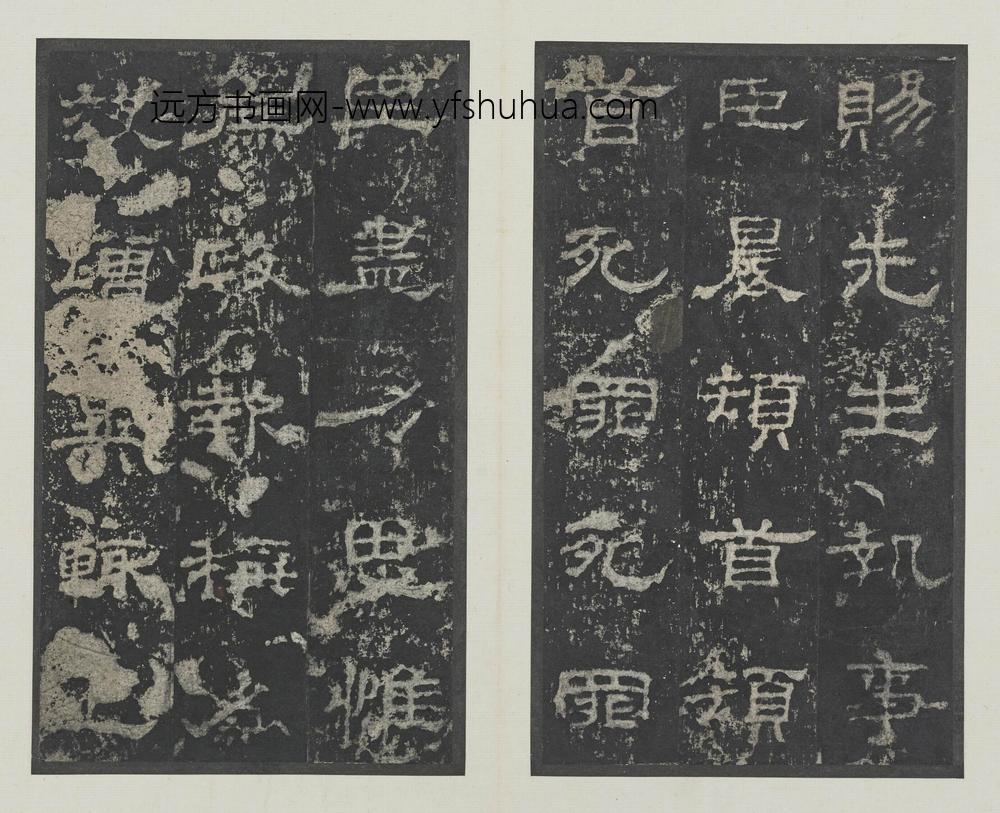 远方书画网-www.yfshuhua.com
賜先生執事
臣晨頓首頓
首死罪死罪
臣盡力思惟
庶政報稱為
效增異輒上